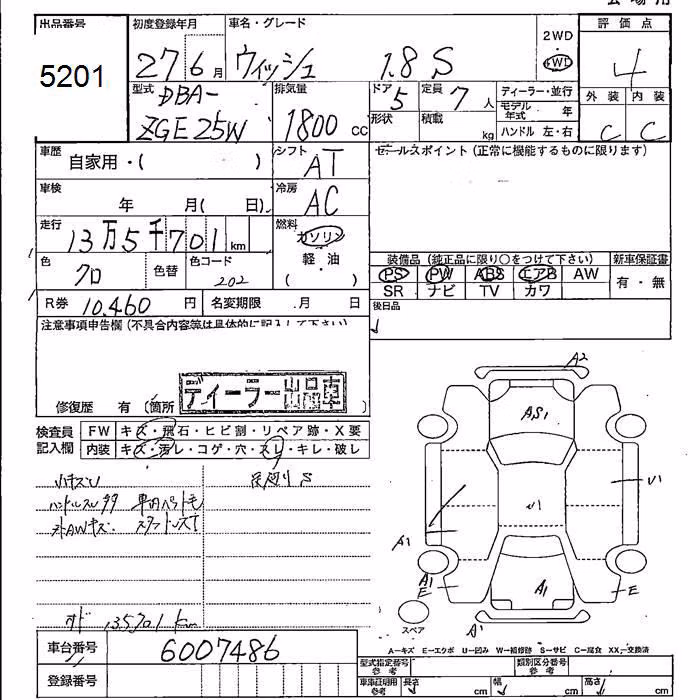 出品番号
5201
初度登録年月
27 6月
車名・グレード
ウィッシュ 1.8 S
2WD
4WD
評価点
4
外装 内装
C C
型式
DBA-
ZGE25W
排気量
1800 cc
ドア
5
定員
7人
形状
積載
kg
ディーラー・並行
モデル年式 年
ハンドル 左・右
車歴
自家用・( )
シフト
AT
セールスポイント (正常に機能するものに限ります)
車検
年 月( 日)
冷房
AC
走行
13万5千701km
燃料
ガソリン
軽・油
( )
色
クロ
色替
色コード
202
装備品 (純正品に限り○をつけて下さい)
新車保証書
PS PW ABS エアB AW
SR ナビ TV カワ
有・無
R券 10.460 円
名変期限 .月 日
後日品
注意事項申告欄 (不具合内容等は具体的に記入して下さい)
ディーラー出品車
修復歴 有 (箇所 )
検査員
記入欄
FW キズ・飛石・ヒビ割・リペア跡・X要
内装 キズ・汚レ・コゲ・穴・スレ・キレ・破レ
小キズU
足廻り S
ハンドルスレ
オド 135701 km
A2
AS1
U1
U1
A1
A1
E
A1
E
A1
スペア
A−キズ E−エクボ U−凹み W−補修跡 S−サビ C−腐食 XX−交換済
車台番号
6007486
登録番号
型式指定番号
参考
類別区分番号
参考
車庫証明用
参考
長さ cm 幅 cm 高さ cm